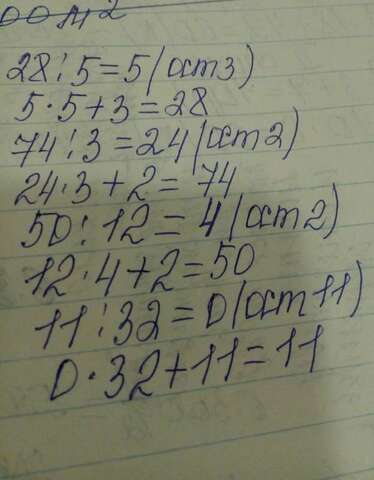 28:5=5(ост3)
5·5+3=28
74:3=24(ост2)
24·3+2=74
50:12=4(ост2)
12·4+2=50
11:32=0(ост11)
0·32+11=11